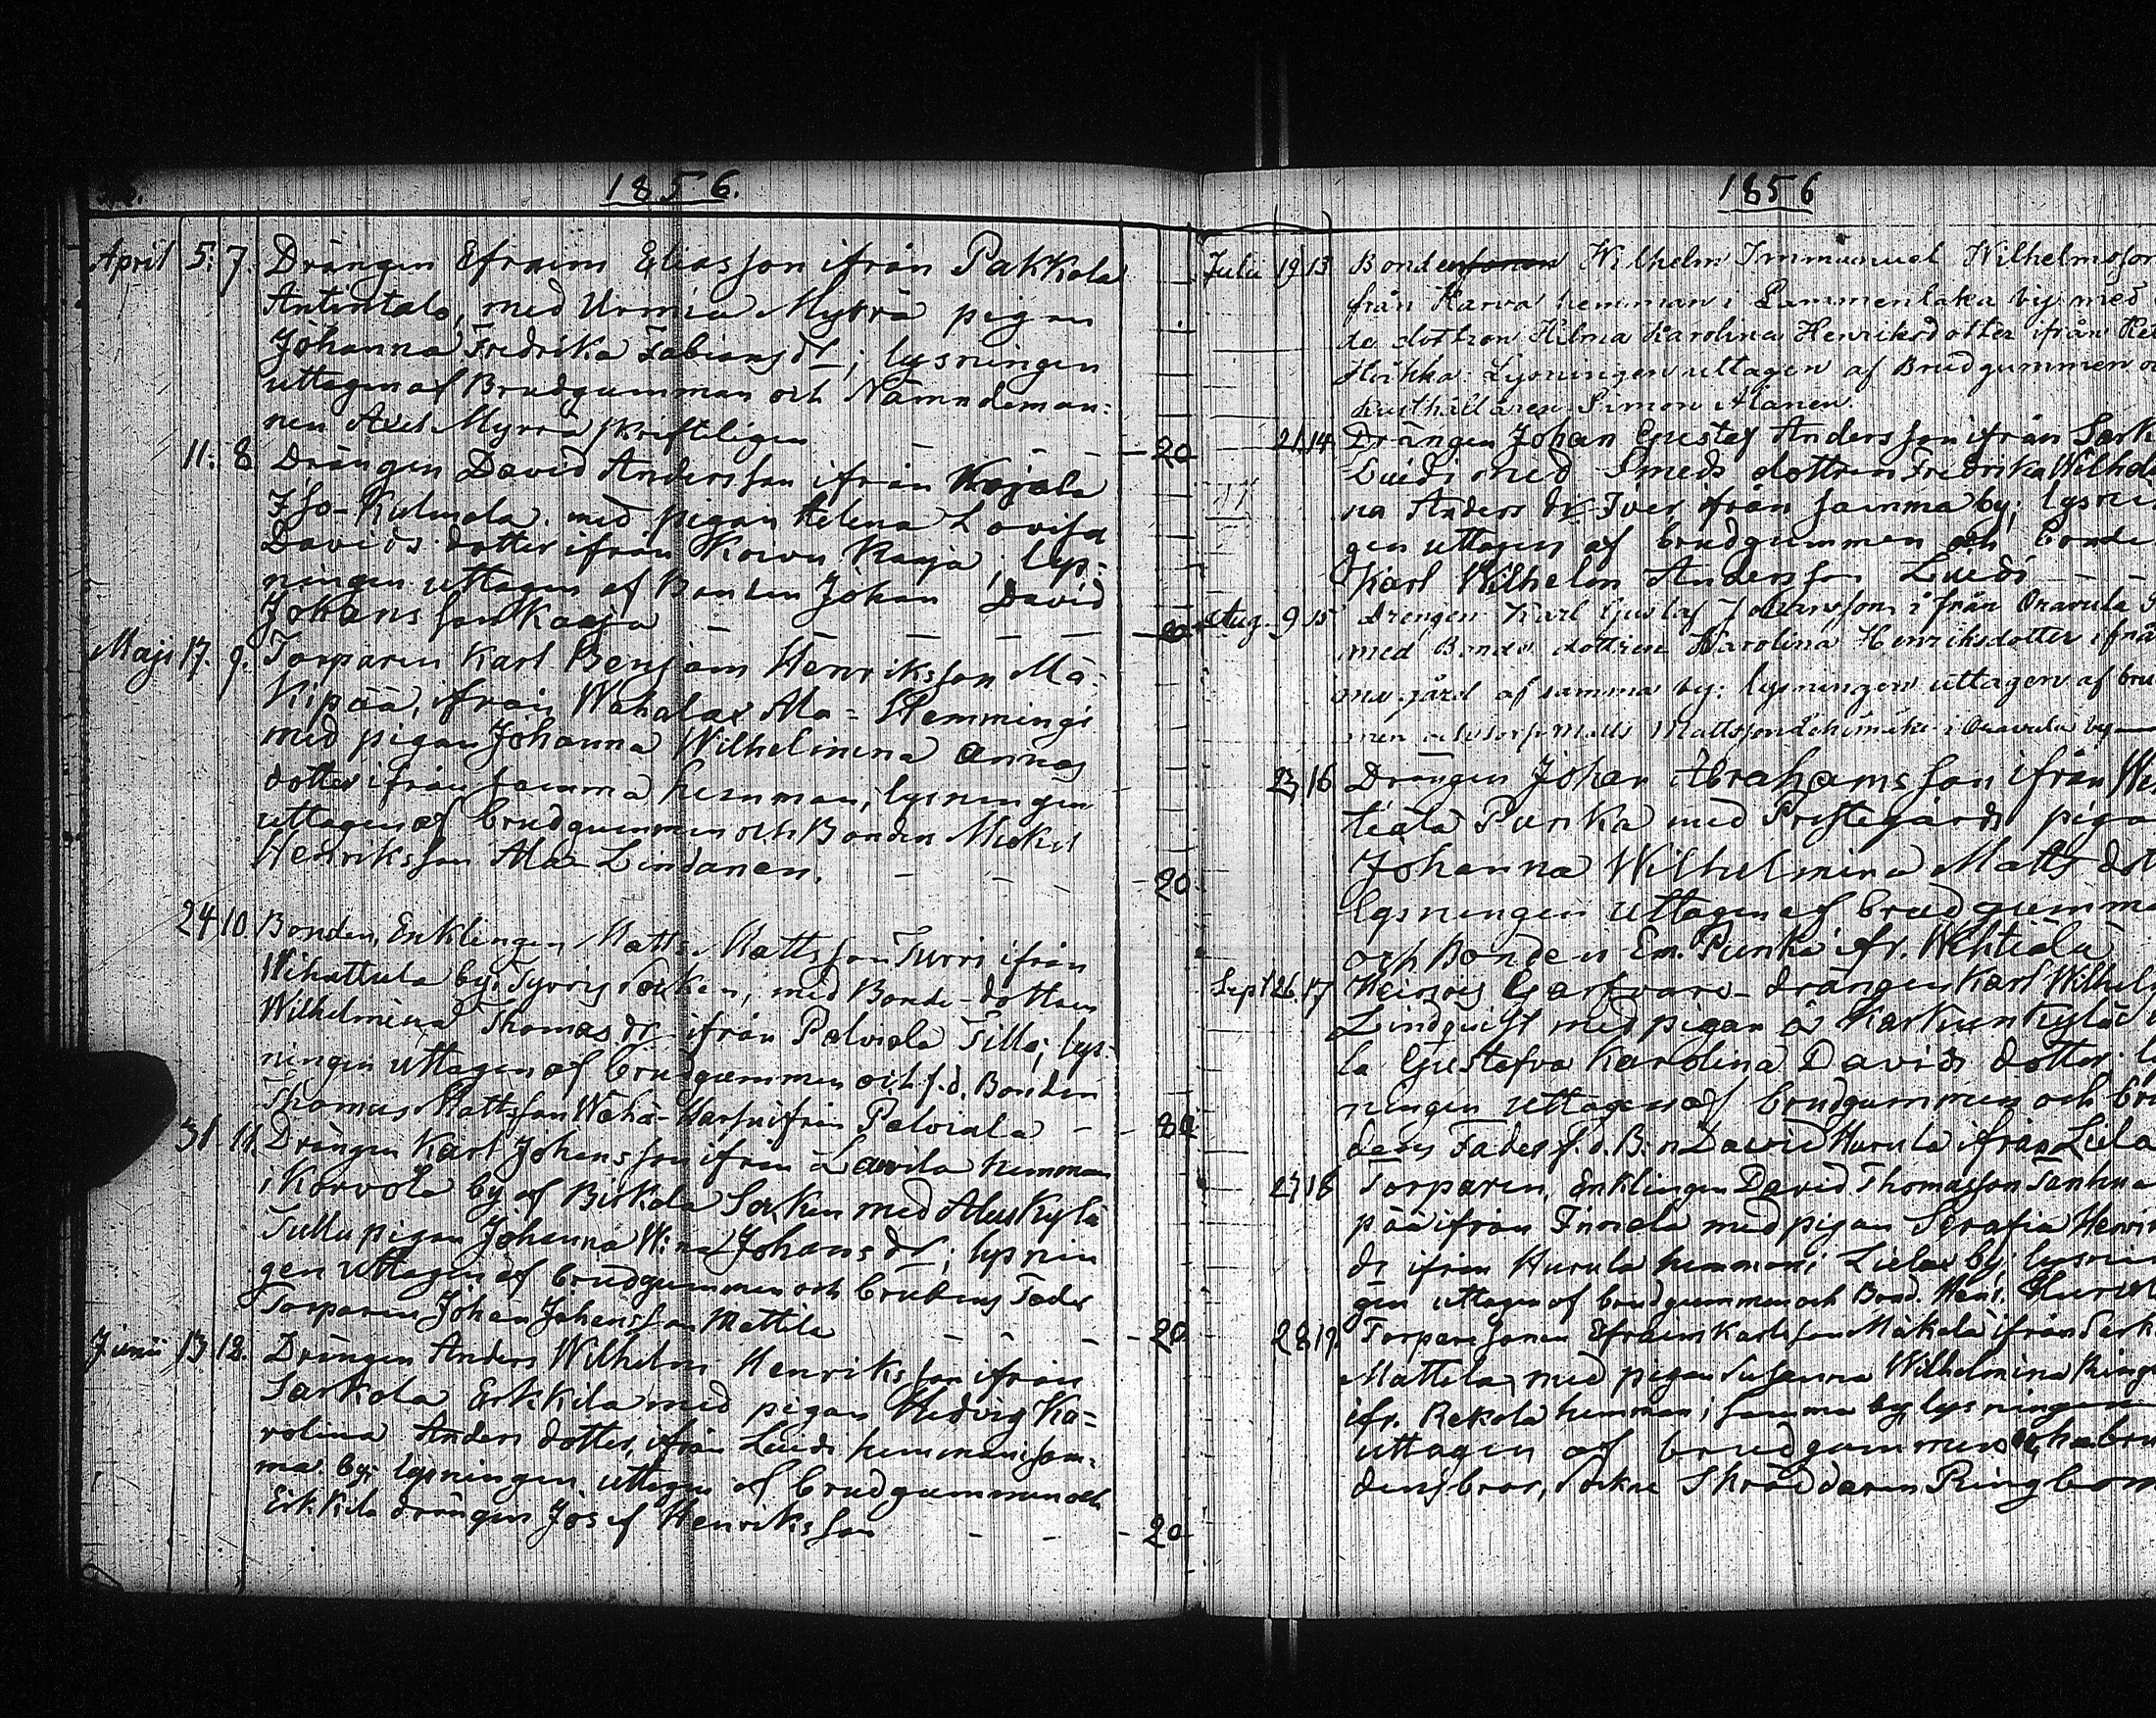 1856.
April 5. 7. Drängen Efraim Eliasson ifrån Pakkala
Antintalo, med Urmia Myrrä pigan
Johanna Fredrika Fabiansdr; lysningen
uttagen af Brudgumman och Nämndeman-
nen Axel Myrrä skrifteligen - - - 20
11. 8. Drängen David Andersson ifrån Kojala
Iso-Kulmala med pigan Helena Lovisa
Davids dotter ifrån Koivu Kaaja; lys-
ningen uttagen af Bonden Johan David
Johansson Kaaja - - - - 20
Maji 17. 9. Torparen Karl Benjam Henriksson Mä-
kipää, ifrån Wahalax Ala-Hemmingi
med pigan Johanna Wilhelmina Annas
dotter ifrån samma hemman; lysningen
uttagen af brudgummen och Bonden Mickel
Henriksson Ala-Lindanen. - - - 20
24 10. Bonden, Enklingen Matts Mattsson Turri ifrån
Wihattula by i Tyrvis Socken, med Bonde-dottren
Wilhelmina Thomasdr ifrån Palviala Tilla; lys-
ningen uttagen af brudgummen och f.d. Bonden
Thomas Mattsson Wähä-Harju ifrån Palviala - 20
31 11. Drängen Karl Johansson ifrån Laurila hemman
i Korvola by af Birkala Socken med Aluskylä
Tullu pigan Johanna W:na Johansdr; lysnin
gen uttagen af brudgummen och brudens Fader
Torparen Johan Johansson Mattila - - - 20
Junii 13. 12. Drängen Anders Wilhelm Henriksson ifrån
Sarkola Erkkila med pigan Hedvig Ka-
rolina Anders dotter, ifrån Luidi hemman i sam-
ma by; lysningen uttagen af brudgummen och
Erkkila drängen Josef Henriksson - - - 20
1856
Julii 19 13 Bonden Wilhelm Immanuel Wilhelmsson
från Karva hemman i Lammentaka by med
de dottron Hilma Karolina Henriksdotter ifrån
Lysningen uttagen af Brudgummen
Rusthållaren Simon Alanen.
21 14 Drängen Johan Gustaf Andersson ifrån Sark
Luidi med Smeds dottren Fredrika Wilhel
na Anders dr Iver från samma by; lysni
gen uttagen af brudgummen och bonde
Karl Wilhelm Andersson Luidi - - -
Aug. 9 15 Drengen Karl Gustaf Johansson ifrån Oravula
med Bonde dottren Karolina Henriksdotter ifrå
gård af samma by; lysningen uttagen af bru
men Matts Mattsson i Oravula by
23 16 Drängen Johan Abrahamsson ifrån We
tiälä Punka med Prestegårds piga
Johanna Wilhelmina Matts dot
lysningen uttagen af brudgumme
och Bonden Em. Punka ifr. Wehtiälä
Sept 26. 17 Heinois Garfvare-drängen Karl Wilhelm
Lindqvist med pigan å Karkunkylä
la Gustafva Karolina Davids dotter; ly
ningen uttagen af brudgummen och bru
dens Fader f.d. B:n David Hurula ifrån Liela
27 18 Torparen, Enklingen David Thomasson Tanhua
pää ifrån Tinnola med pigan Serafia Henri
dr ifrån Hurula hemman i Lielax by; lysnin
gen uttagen af brudgummen och Bond. Henr. Hurul
28 19. Torparesonen Efraim Karlsson Mäkelä ifrån Sark
Mattila med pigan Susanna Wilhelmina Ring
ifr. Rekola hemman i samma by, lysningen
uttagen af brudgummen och bru
dens bror, Sockne Skräddaren Ringbom